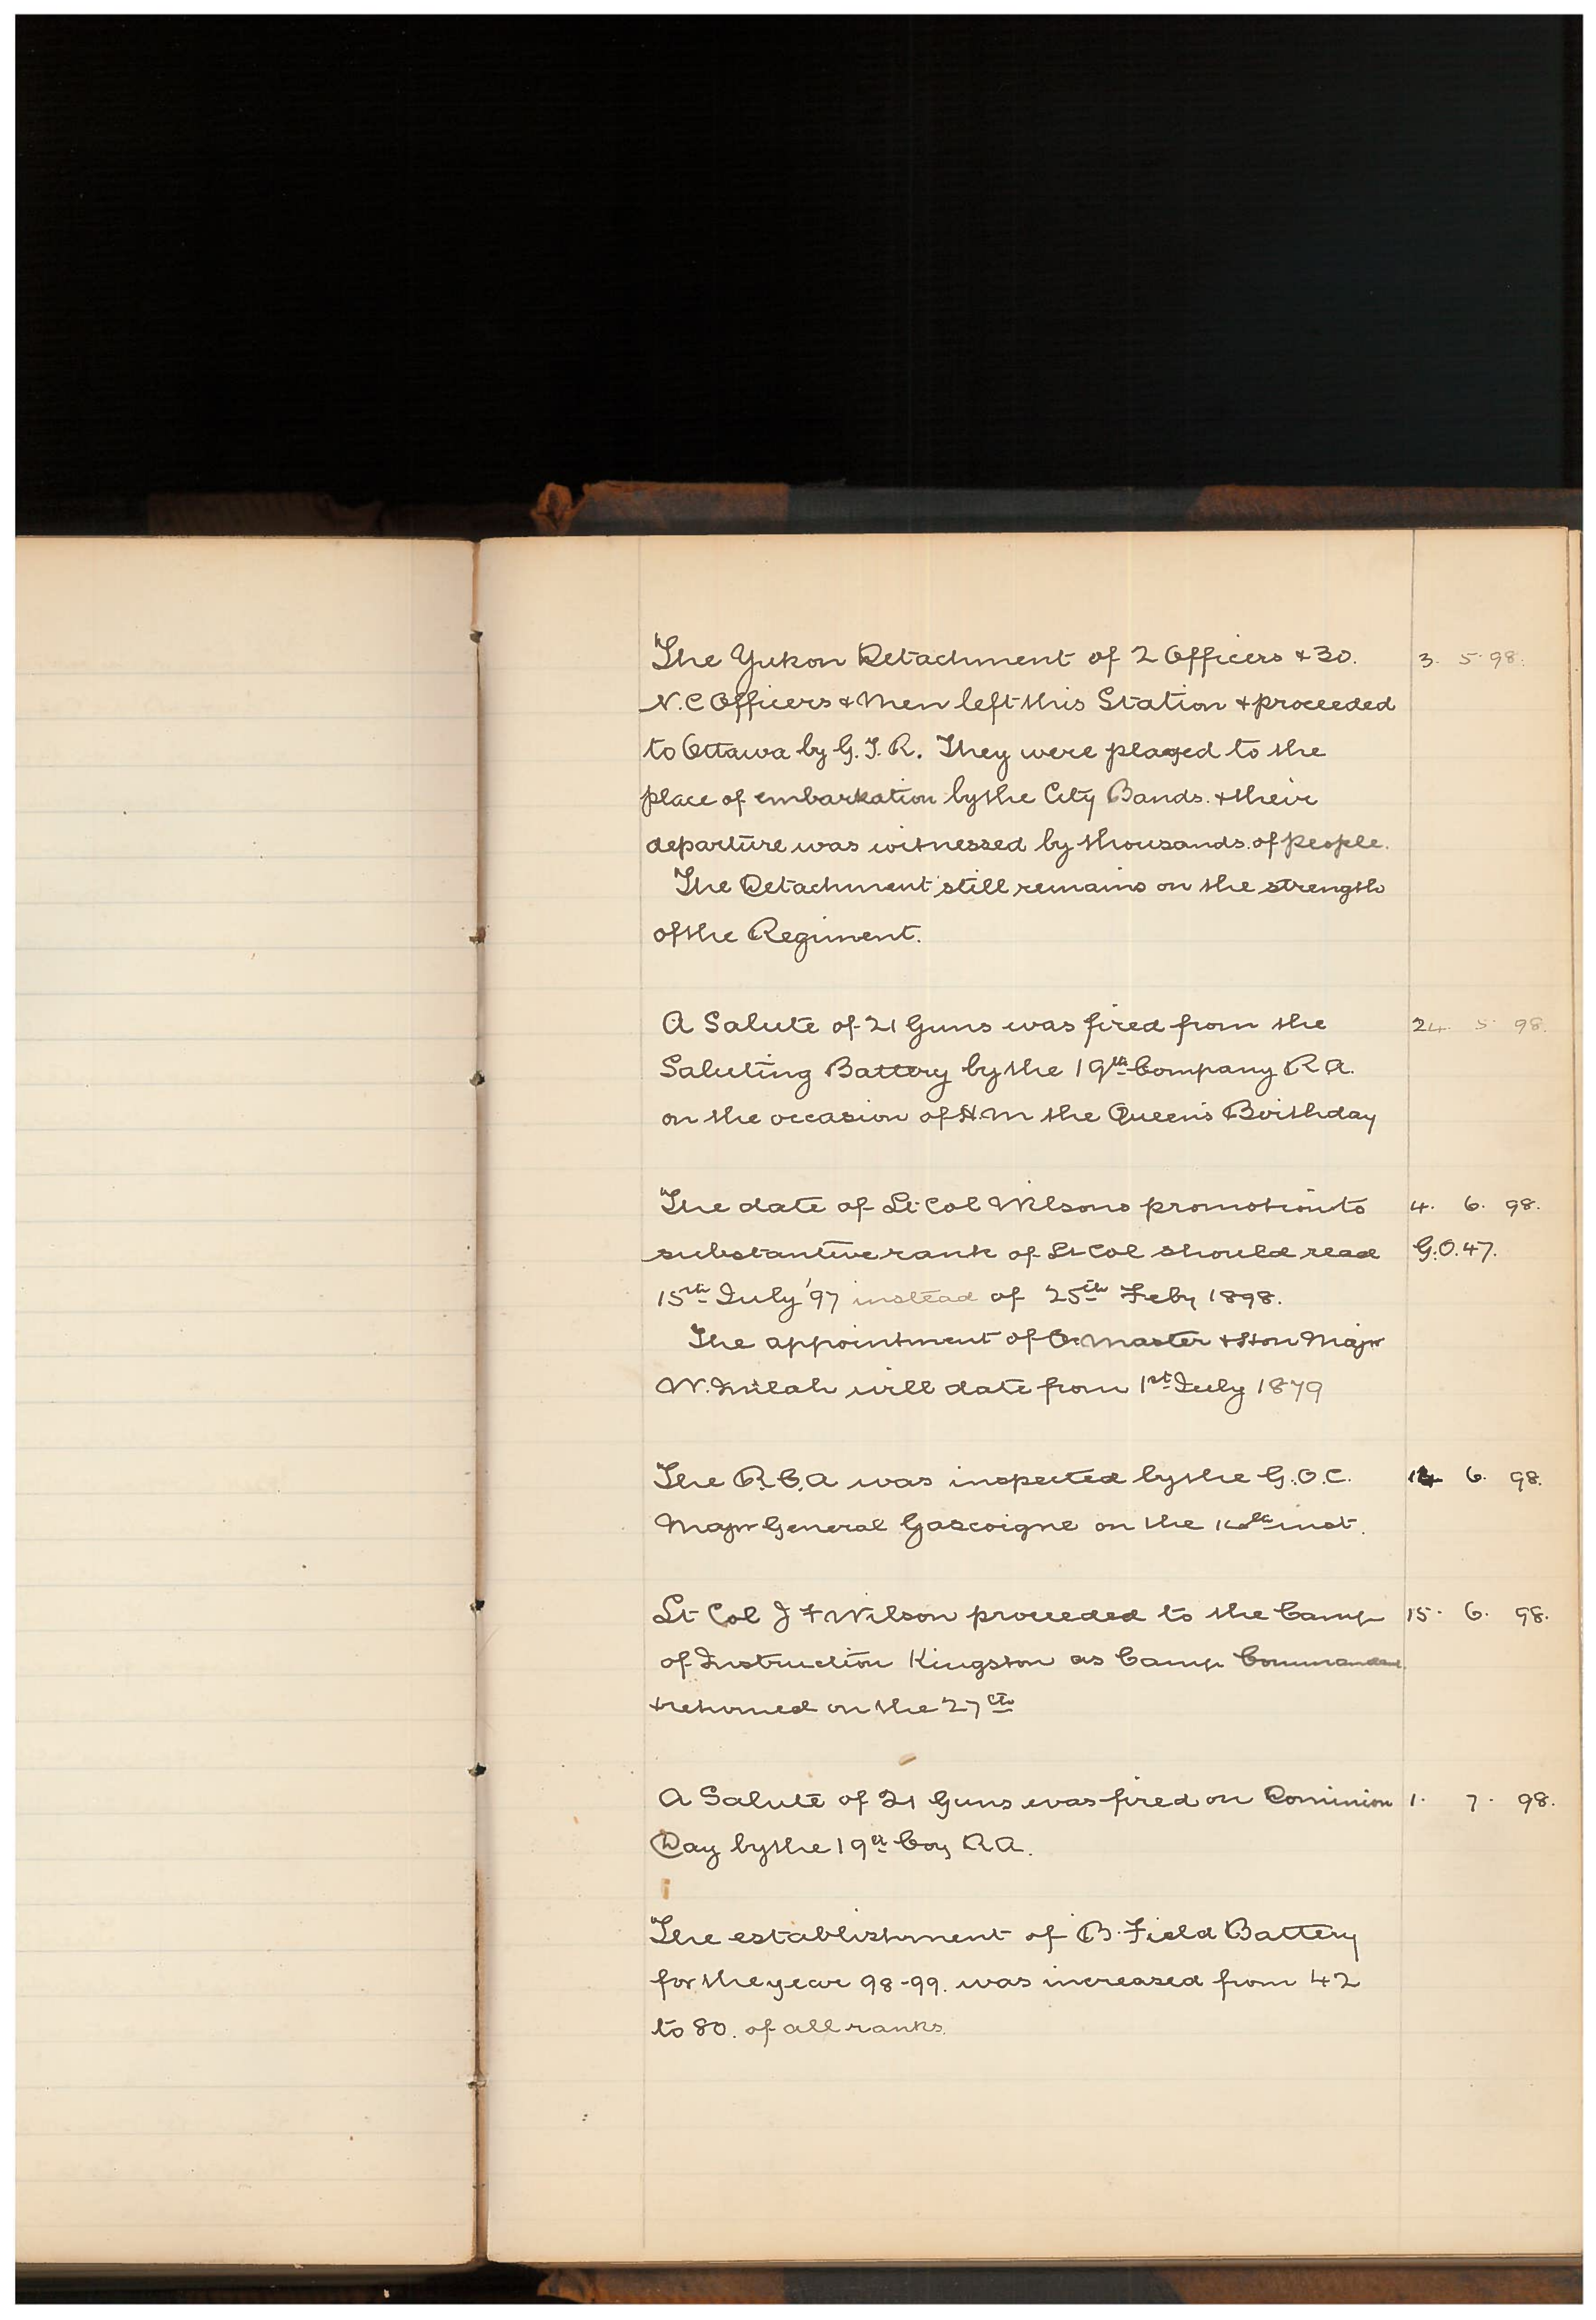 The Yukon Detachment of 2 Officers & 30. 3. 5. 98.
N.C Officers & Men left this Station & proceeded
to Ottawa by G.T.R. They were played to the
place of embarkation by the City Bands. & their
departure was witnessed by thousands. of people.
The Detachment still remains on the strength
of the Regiment.
A Salute of 21 Guns was fired from the 24. 5 98.
Saluting Battery by the 19th Company R A.
on the occasion of H.M the Queen's Birthday
The date of Lt Col Wilsons promotion to 4. 6. 98.
substantive rank of Lt Col should read G.O.47.
15th July '97 instead of 25th Feby 1898.
The appointment of Qr Master & Hon Major
W. will date from 1st July 1879
The R.C.A was inspected by the G.O.C. 6. 98.
Major General Gascoigne on the inst.
Lt Col J F Wilson proceeded to the Camp 15. 6. 98.
of Instruction Kingston as Camp Commandant
& returned on the 27th
A Salute of 21 Guns was fired on Dominion 1. 7. 98.
Day by the 19th Coy R A.
The establishment of B. Field Battery
for the year 98-99. was increased from 42
to 80. of all ranks.